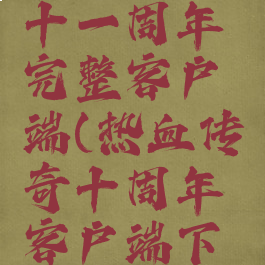 十一周年
完整客户
端(热血传
奇十周年
客户端下